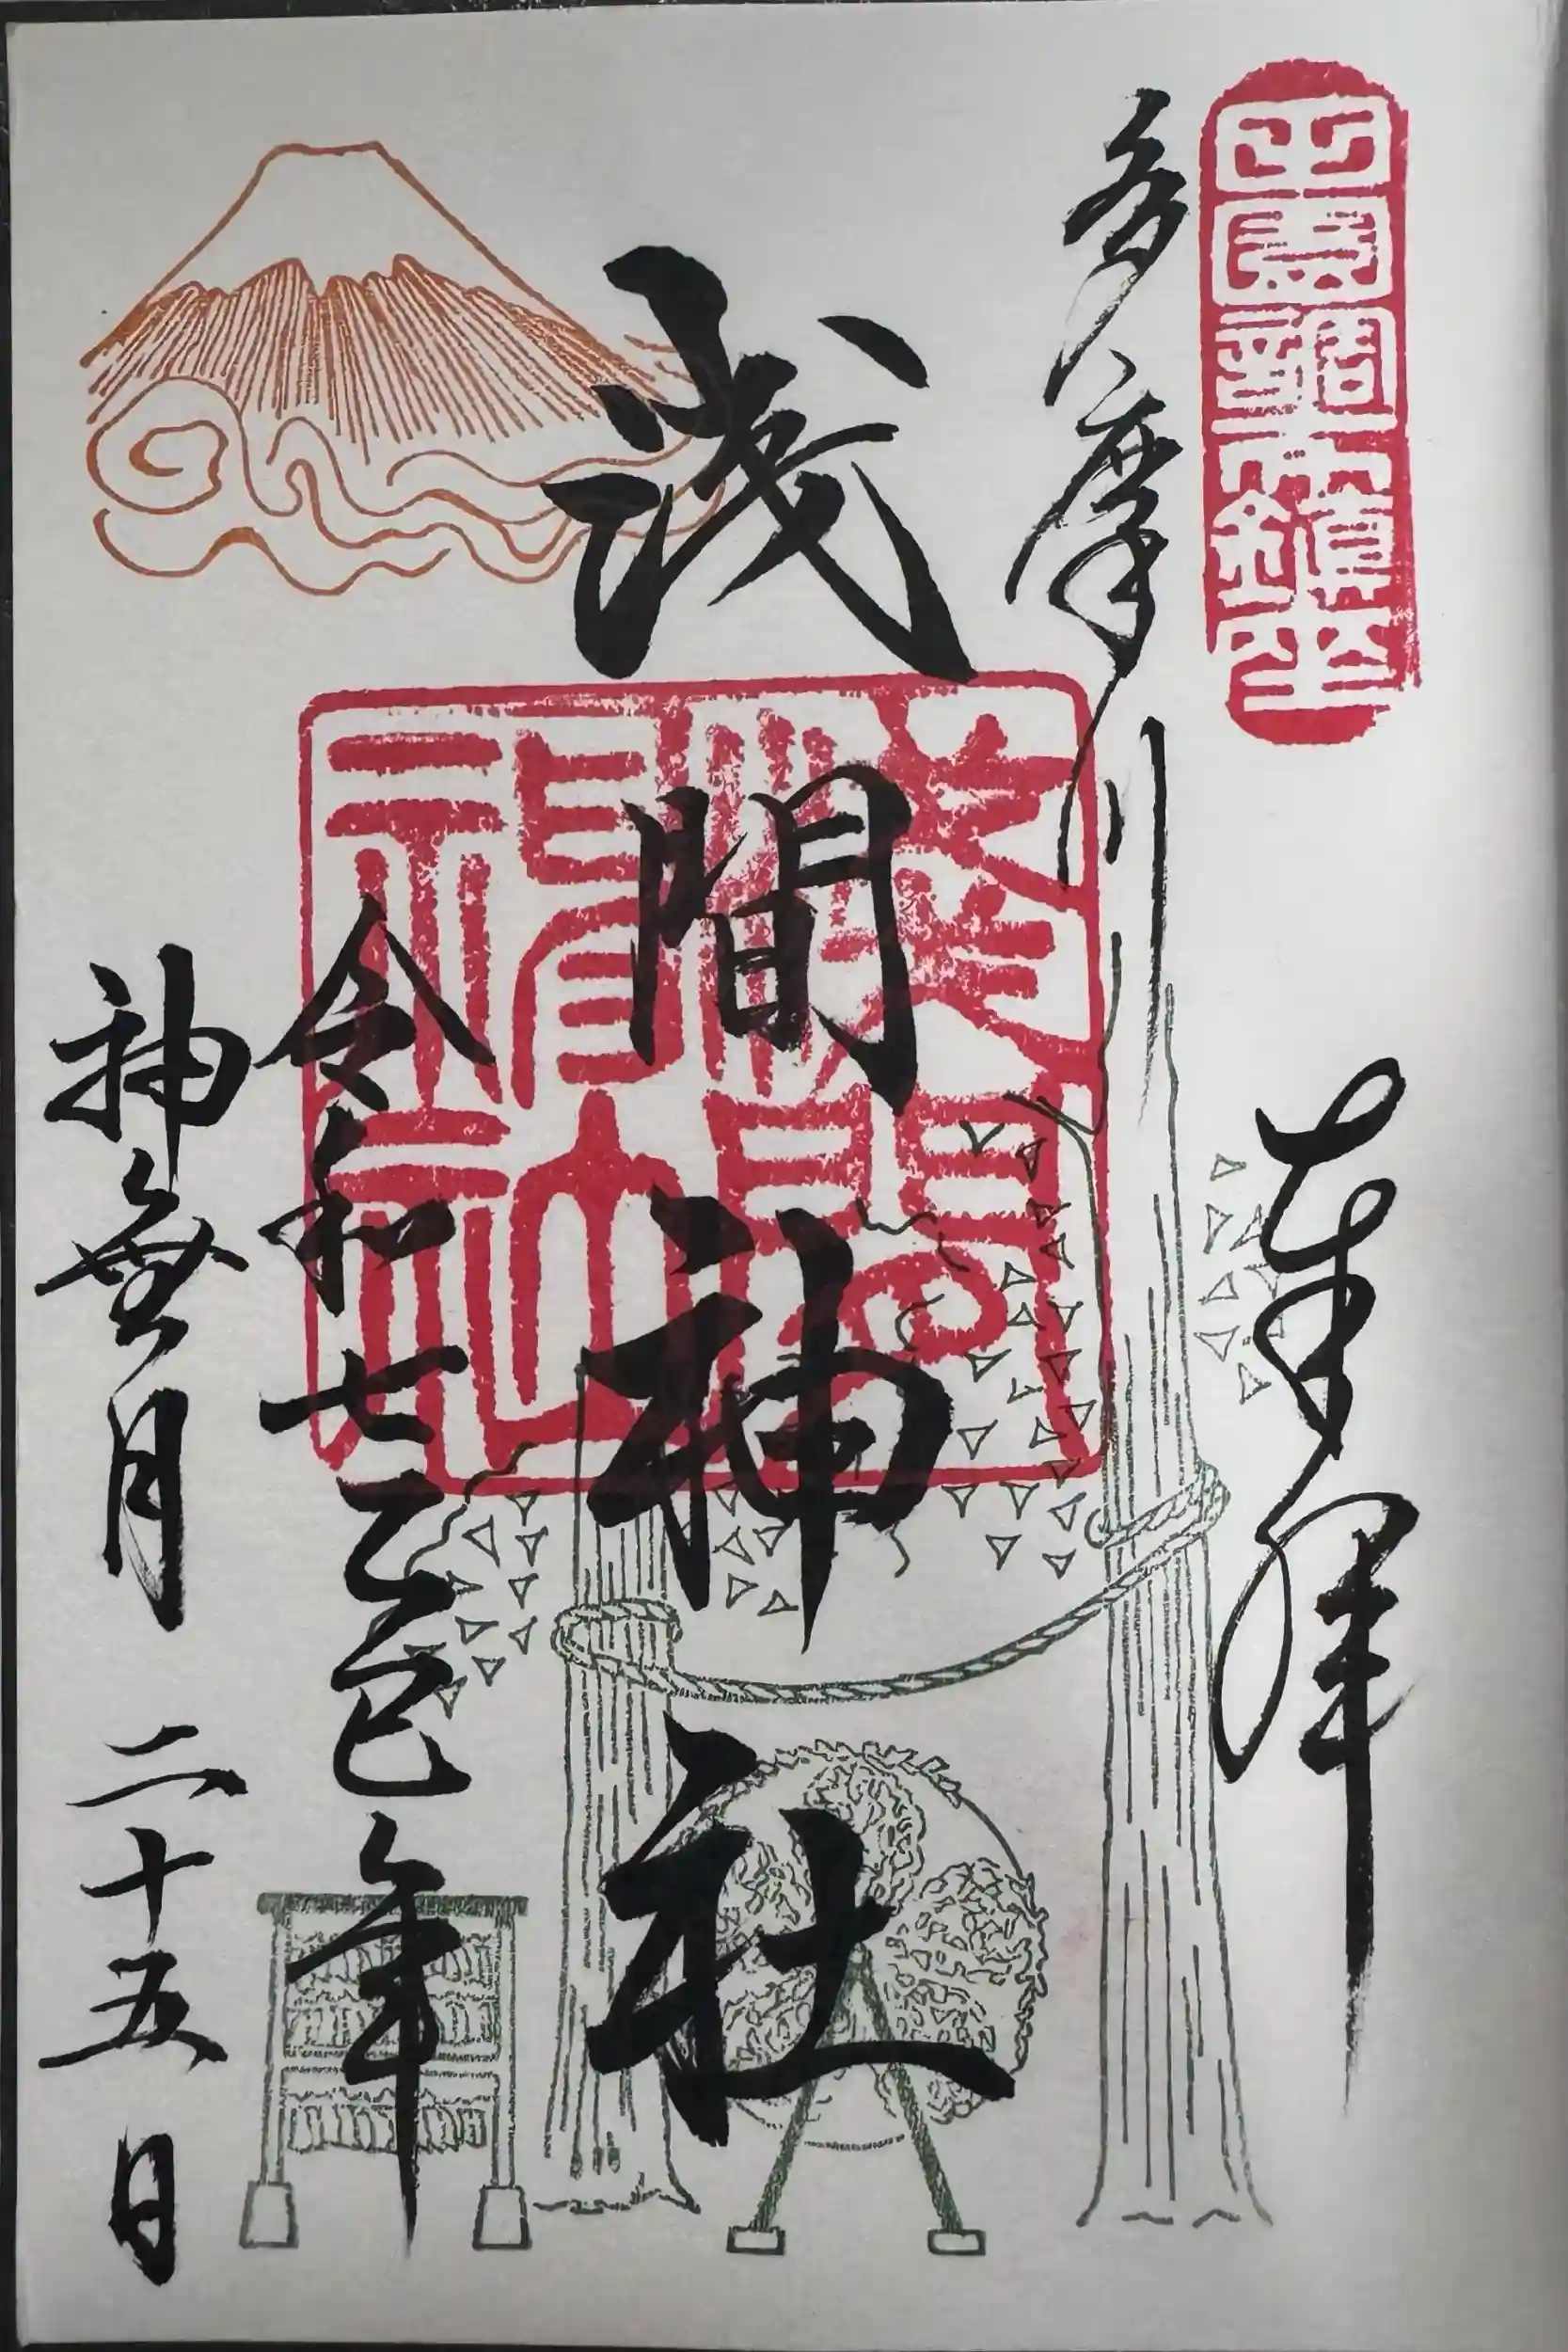 田園調布鎮座
奉拝
多摩川
浅間神社
淺間
神社
令和七乙巳年
神無月二十五日